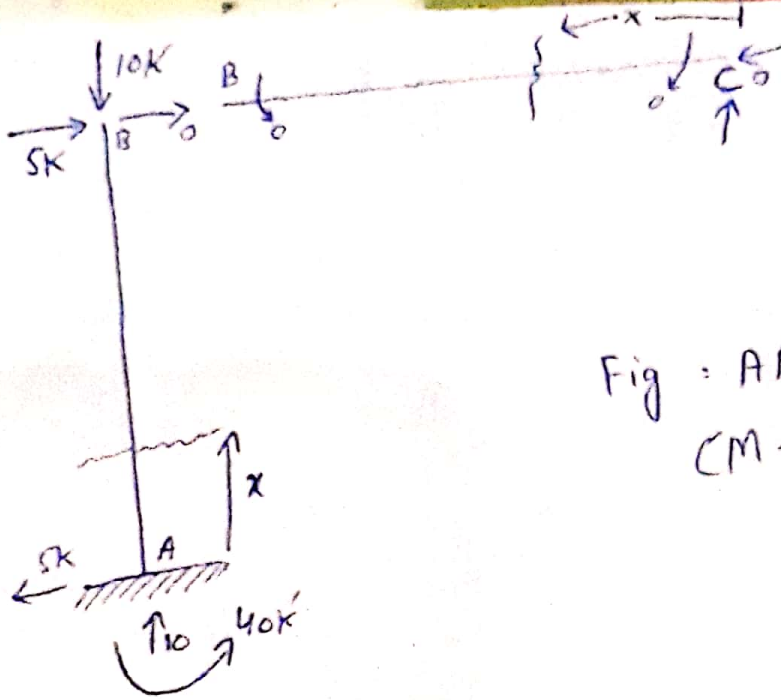 x
10K
B
5K
B
0
0
0
C
0
Fig : A
(M
x
5K
A
10
40K'